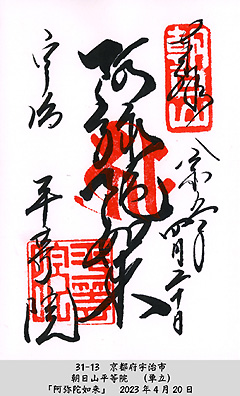 奉拝
八宗兼学
四月二十日
阿弥陀如来
宇治
平等院
朝日山
平等院
31-13 京都府宇治市
朝日山平等院 (単立)
「阿弥陀如来」 2023年4月20日